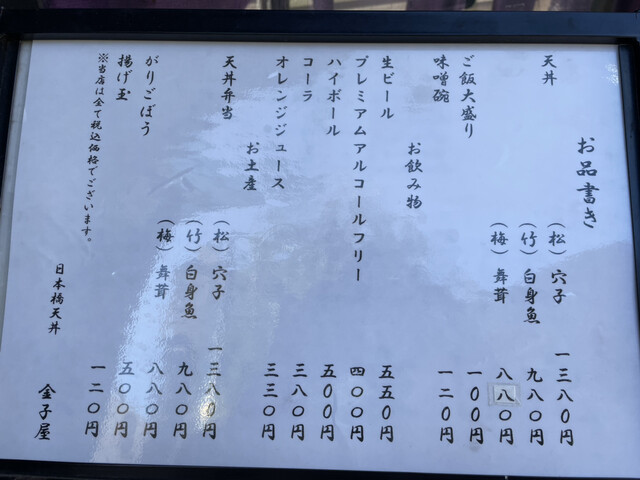 お品書き
天丼 (松) 穴子 一三八〇円
(竹) 白身魚 九八〇円
(梅) 舞茸 八八〇円
ご飯大盛り 一〇〇円
味噌碗 一二〇円
お飲み物
生ビール 五五〇円
プレミアムアルコールフリー 四〇〇円
ハイボール 五〇〇円
コーラ 三八〇円
オレンジジュース 三三〇円
お土産
天丼弁当 (松) 穴子 一三八〇円
(竹) 白身魚 九八〇円
(梅) 舞茸 八八〇円
がりごぼう 五〇〇円
揚げ玉 一二〇円
※当店は全て税込価格でございます。
日本橋天丼 金子屋